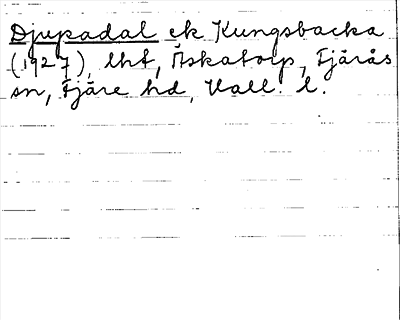 Djupadal ek Kungsbacka
(1927), lht, Åskatorp, Fjärås
sn, Fjäre hd, Hall. l.